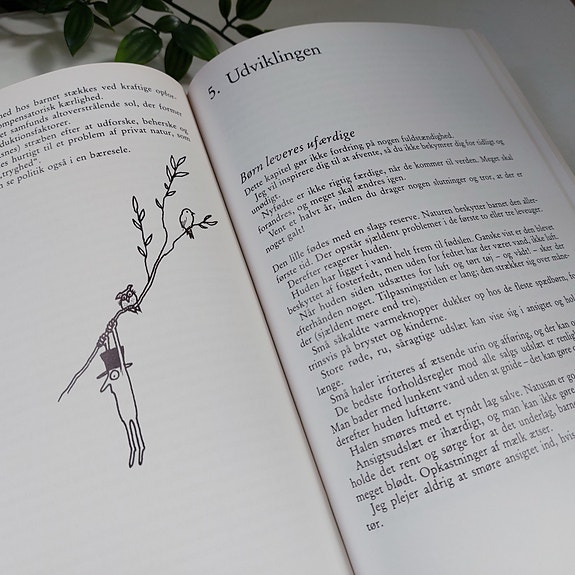 hed hos barnet stækkes ved kraftige oplor-
ompensatorisk kærlighed.
et samfunds altoverstrålende sol, der former
duktionsfaktorer.
snes) stræben efter at udforske, beherske og
es hurtigt til et problem af privat natur, som
„tryghed”.
n se politik også i en bæresele.
5. Udviklingen
Børn leveres ufærdige
Dette kapitel gør ikke fordring på nogen fuldstændighed.
Jeg vil inspirere dig til at afvente, så du ikke bekymrer dig for tidligt og
unødigt.
Nyfødte er ikke rigtig færdige, når de kommer til verden. Meget skal
forandres, og meget skal ændres igen.
Vent et halvt år, inden du drager nogen slutninger og tror, at der er
noget galt!
Den lille fødes med en slags reserve. Naturen beskytter barnet den aller-
første tid. Der opstår sjældent problemer i de første to eller tre leveuger.
Derefter reagerer huden.
Huden har ligget i vand helt frem til fødslen. Ganske vist er den blevet
beskyttet af fosterfedt, men uden for fedtet har der været vand, ikke luft.
Når huden siden udsættes for luft og tørt tøj, – og vådt! – sker der
efterhånden noget. Tilpasningstiden er lang, den strækker sig over måne-
der (sjældent mere end tre).
Små såkaldte varmeknopper dukker op hos de fleste spædbørn, fo
trinsvis på brystet og kinderne.
Store røde, ru, såragtige udslæt kan vise sig i ansigtet og hol
længe.
Små haler irriteres af ætsende urin og afføring, og der kan o
De bedste forholdsregler mod alle salgs udslæt er renlig
Man bader med lunkent vand uden at gnide – det kan gøre
derefter huden lufttørre.
Halen smøres med et tyndt lag salve. Natusan er go
Ansigtsudslæt er ihærdigt, og man kan ikke gø
holde det rent og sørge for at det underlag, barn
meget blødt. Opkastninger af mælk ætser.
Jeg plejer aldrig at smøre ansigtet ind, hvis
tør.